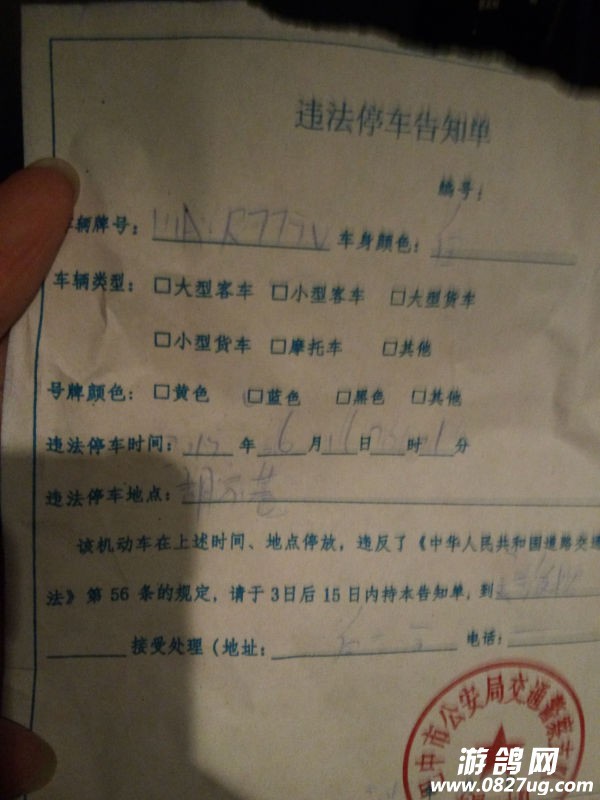 违法停车告知单
编号：
车辆牌号： 车身颜色：
车辆类型： □大型客车 □小型客车 □大型货车
□小型货车 □摩托车 □其他
号牌颜色： □黄色 □蓝色 □黑色 □其他
违法停车时间： 年 6 月 日 时 分
违法停车地点： 胡家巷
该机动车在上述时间、地点停放，违反了《中华人民共和国道路交通
法》第 56 条的规定，请于 3日后 15 日内持本告知单，到
接受处理（地址： 电话：
巴中市公安局交通警察支
游鸽网
www.0827ug.com